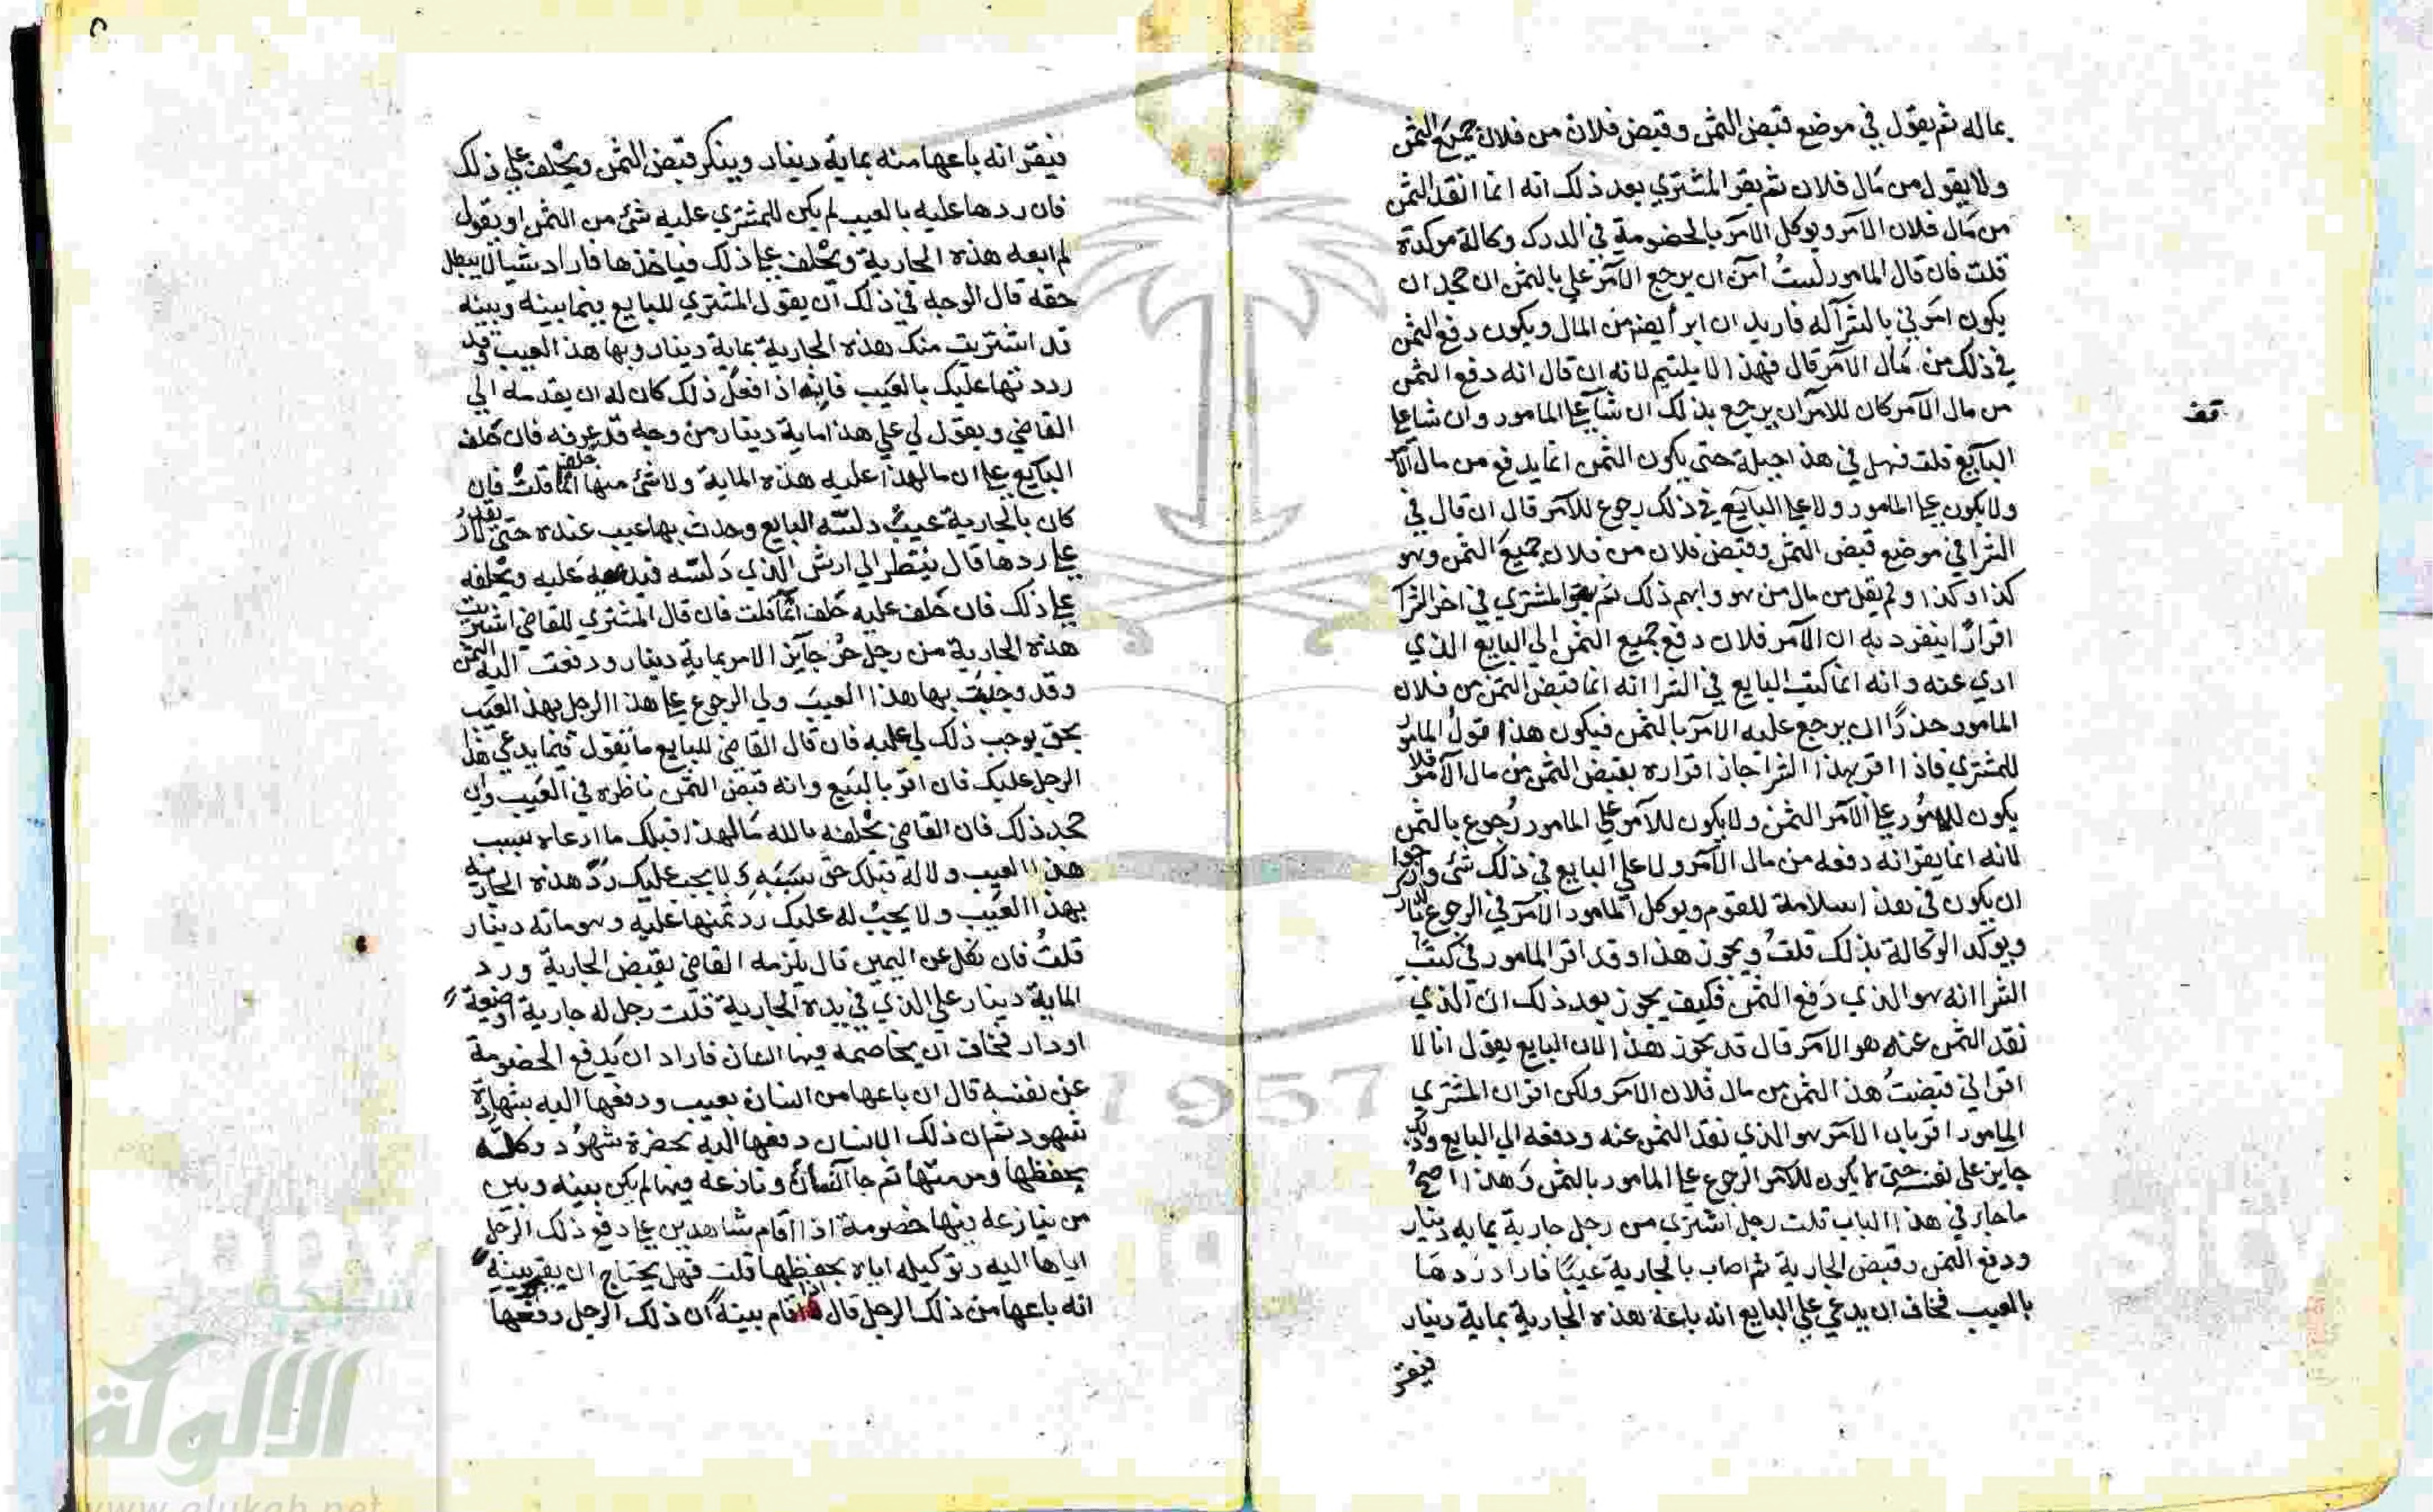 بماله ثم يقول في موضع قبض الثمن وقبض فلان من فلان جميع الثمن
ولا يقول من مال فلان ثم يقر المشتري بعد ذلك انه انما انقد الثمن
من مال فلان الآمر ويوكل الآمر بالخصومة في الدرك وكالة موكدة
قلت فان قال المامور لست آمن ان يرجع الآمر علي بالثمن ان جحد ان
يكون امرني بالشرآ له فاريد ان ابرأ من المال ويكون دفع الثمن
في ذلك من مال الآمر قال فهذا لا يلتيم لانه ان قال انه دفع الثمن
من مال الآمر كان للآمر ان يرجع بذلك ان شآ علي المامور وان شا علي
البآيع قلت فهل في هذا حيلة حتي يكون الثمن انما يدفع من مال الآمر
ولا يكون علي المامور ولا علي البآيع في ذلك رجوع للآمر قال ان قال في
الشرا في موضع قبض الثمن وقبض فلان من فلان جميع الثمن وهو
كذا وكذا ولم يقل من مال من هو وابهم ذلك ثم يقر المشتري في اخر الشرآ
اقرارًا ينفرد به ان الآمر فلان دفع جميع الثمن الي البايع الذي
ادي عنه وانه انما كتب البايع في الشرا انه انما قبض الثمن من فلان
المامور حذرًا ان يرجع عليه الآمر بالثمن فيكون هذا قول المامور
للمشتري فاذا اقر بهذا الشرا جاز اقراره بقبض الثمن من مال الآمر فلا
يكون للمامور علي الآمر الثمن ولا يكون للآمر علي المامور رجوع بالثمن
لانه انما يقر انه دفعه من مال الآمر ولا علي البايع في ذلك شئ وارجوا
ان يكون في هذا سلامة للقوم ويوكل المامور الآمر في الرجوع بالدرك
ويوكد الوكالة بذلك قلت ويجوز هذا وقد اقر المامور في كتب
الشرا انه هو الذي دفع الثمن فكيف يجوز بعد ذلك ان الذي
نقد الثمن عنه هو الآمر قال قد يجوز هذا لان البايع يقول انا لا
اقر اني قبضت هذا الثمن من مال فلان الآمر ولكن اقر ان المشتري
المامور اقر بان الآمر هو الذي نقد الثمن عنه ودفعه الي البايع وذلك
جايز علي نفسه حتي لا يكون للآمر الرجوع علي المامور بالثمن وهذا اصح
ما جاز في هذا الباب قلت رجل اشتري من رجل جارية بماية دينار
ودفع الثمن وقبض الجارية ثم اصاب بالجارية عيبًا فاراد ردها
بالعيب فخاف ان يدعي علي البايع انه باعه هذه الجارية بماية دينار
فيقر
قف
فيقر انه باعها منه بماية دينار وينكر قبض الثمن ويحلف علي ذلك
فان ردها عليه بالعيب لم يكن للمشتري عليه شئ من الثمن او يقول
لم ابعه هذه الجارية ويحلف علي ذلك فياخذها فاراد شيا لا يبطل
حقه قال الوجه في ذلك ان يقول المشتري للبايع فيما بينه وبينه
قد اشتريت منك هذه الجارية بماية دينار وبها هذا العيب وقد
رددتها عليك بالعيب فانه اذا فعل ذلك كان له ان يقدمه الي
القاضي ويقول لي علي هذا ماية دينار من وجه قد عرفه فان حلف
البآيع علي ان ما لهذا عليه هذه الماية ولا شئ منها حلف آثما قلت فان
كان بالجارية عيب دلسه البايع وحدث بها عيب عنده حتي لا يقدر
علي ردها قال ينظر الي ارش الذي دلسه فيدعيه عليه ويحلفه
علي ذلك فان حلف عليه حلف آثما قلت فان قال المشتري للقاضي اشتريت
هذه الجارية من رجل حر جآيز الامر بماية دينار ودفعت اليه الثمن
وقد وجدت بها هذا العيب ولي الرجوع علي هذا الرجل بهذا العيب
بحق يوجب ذلك لي عليه فان قال القاضي للبايع ما تقول فيما يدعي هذا
الرجل عليك فان اقر بالبيع وانه قبض الثمن ناظره في العيب وان
جحد ذلك فان القاضي يحلفه بالله ما لهذا قبلك ما ادعاه بسبب
هذا العيب ولا له قبلك حق بسببه ولا يجب عليك رد هذه الجارية
بهذا العيب ولا يجب له عليك رد ثمنها عليه وهو ماية دينار
قلت فان نكل عن اليمين قال يلزمه القاضي بقبض الجارية ورد
الماية دينار علي الذي في يده الجارية قلت رجل له جارية او ضيعة
او دار فخاف ان يخاصمه فيها انسان فاراد ان يدفع الخصومة
عن نفسه قال ان باعها من انسان بعيب ودفعها اليه بشهادة
شهود ثم ان ذلك الانسان دفعها اليه بحضرة شهود وكله
بحفظها ومرمتها ثم جا انسان ونازعه فيها لم يكن بينه وبين
من ينازعه فيها خصومة اذا اقام شاهدين علي دفع ذلك الرجل
اياها اليه وتوكيله اياه بحفظها قلت فهل يحتاج ان يقر بينة
انه باعها من ذلك الرجل قال اذا اقام بينة ان ذلك الرجل دفعها
1957
شبكة
الألوكة
www.alukah.net